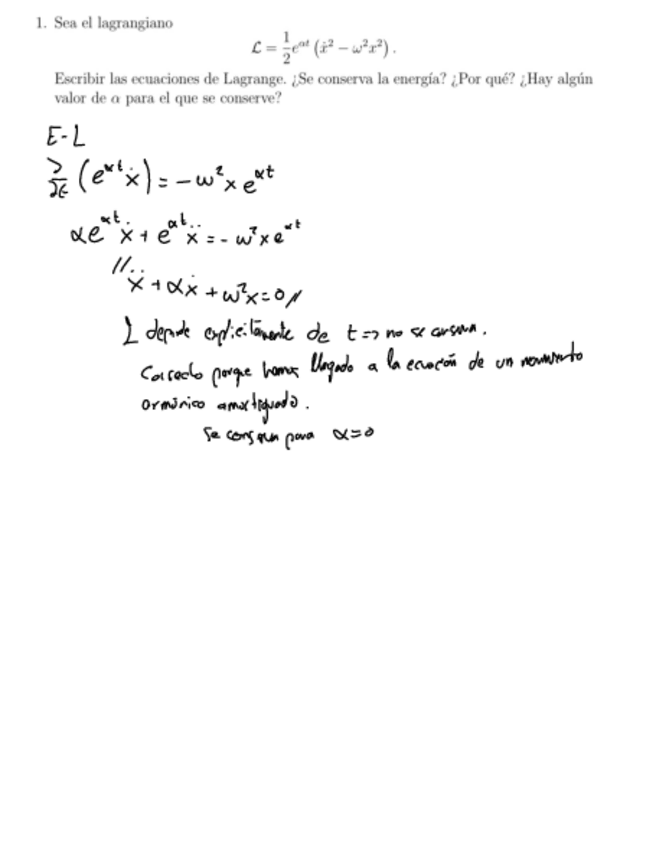 1. Sea el lagrangiano
ℒ = 1/2 e^{αt} (ẋ² − ω²x²) .
Escribir las ecuaciones de Lagrange. ¿Se conserva la energía? ¿Por qué? ¿Hay algún
valor de α para el que se conserve?
E-L
∂/∂t (e^{αt} ẋ) = -ω² x e^{αt}
α e^{αt} ẋ + e^{αt} ẍ = - ω² x e^{αt}
// ẍ + αẋ + ω²x = 0 //
L depende explícitamente de t => no se conserva.
Correcto porque hemos llegado a la ecuación de un movimiento
armónico amortiguado.
Se conserva para α=0